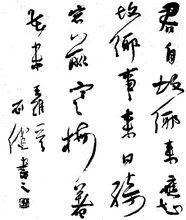 君自故鄉來應知
故鄉事來日綺
窗前寒梅著
花未
書之